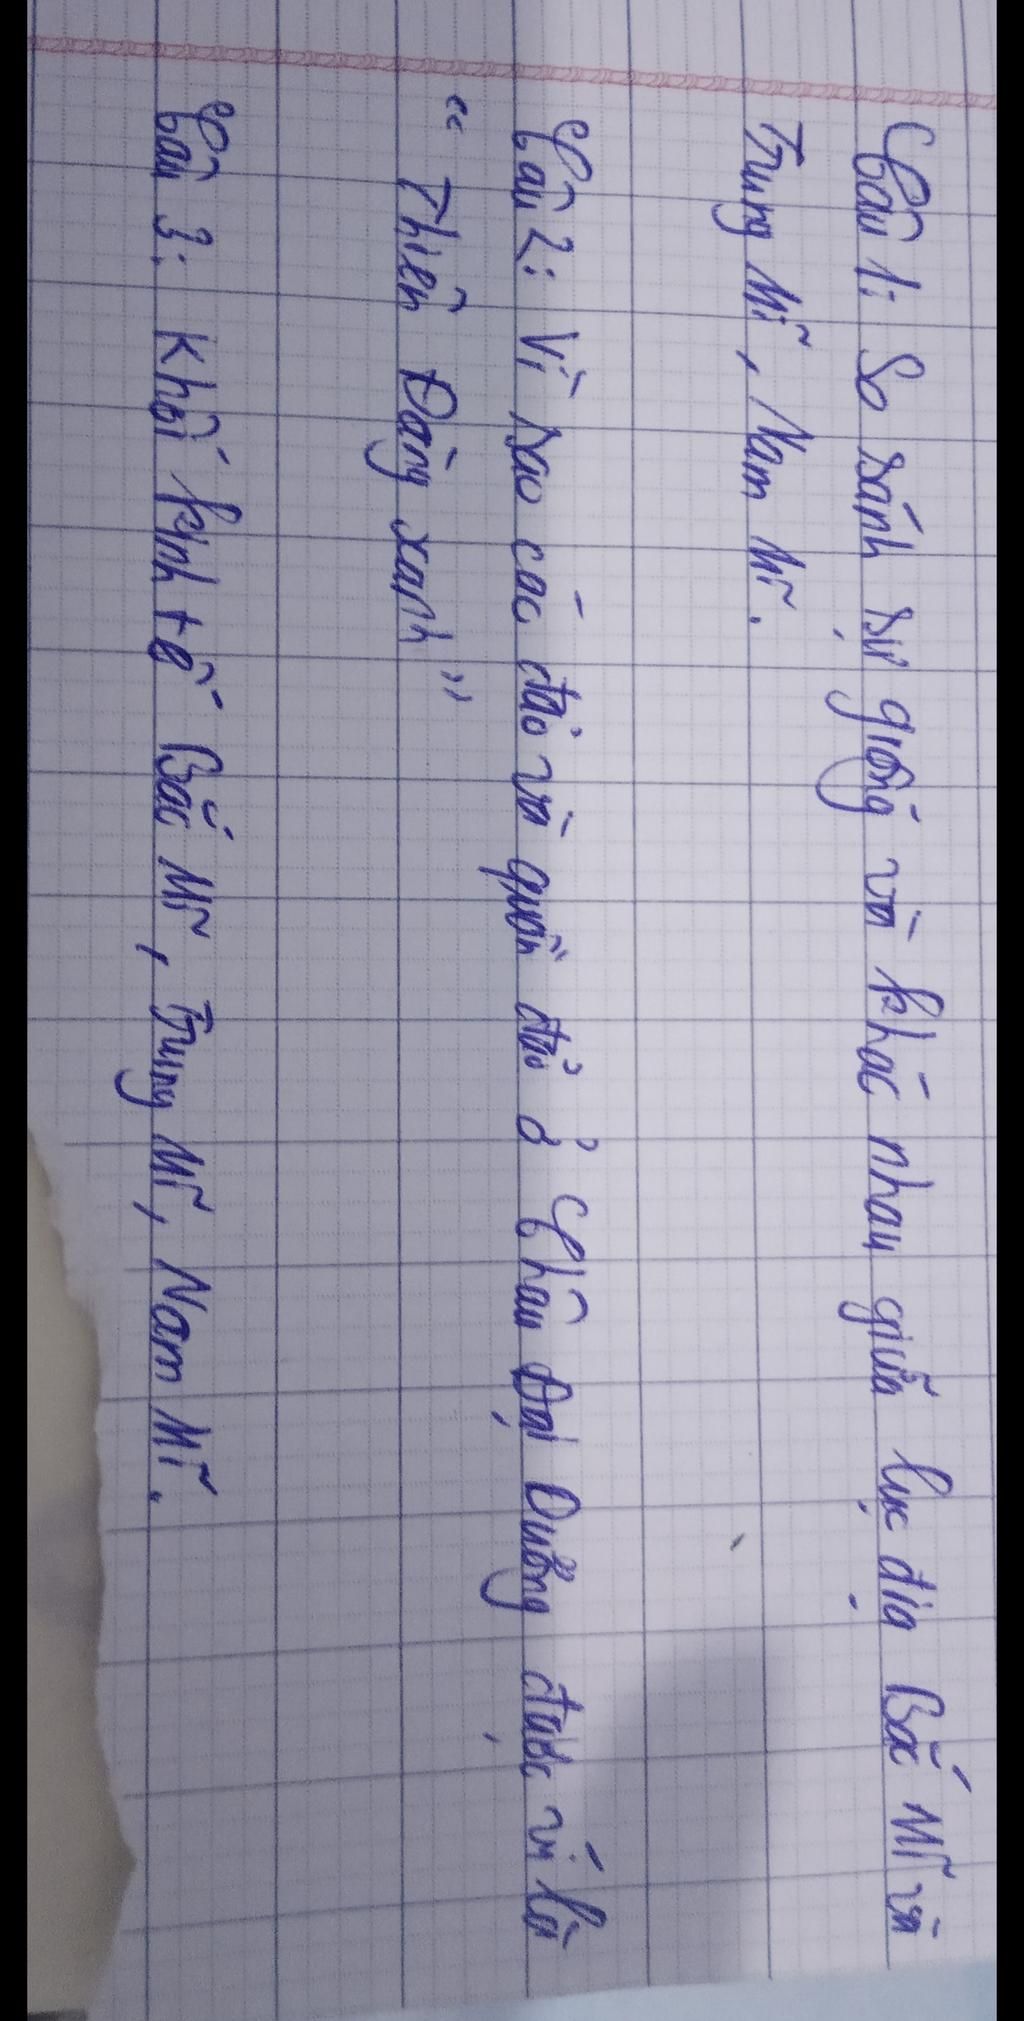 Câu 1: So sánh sự giống và khác nhau giữa lục địa Bắc Mĩ và
Trung Mĩ, Nam Mĩ.
Câu 2: Vì sao các đảo và quần đảo ở Châu Đại Dương được ví là
“ Thiên Đàng xanh ”
Câu 3: Khối kinh tế Bắc Mĩ, Trung Mĩ, Nam Mĩ.